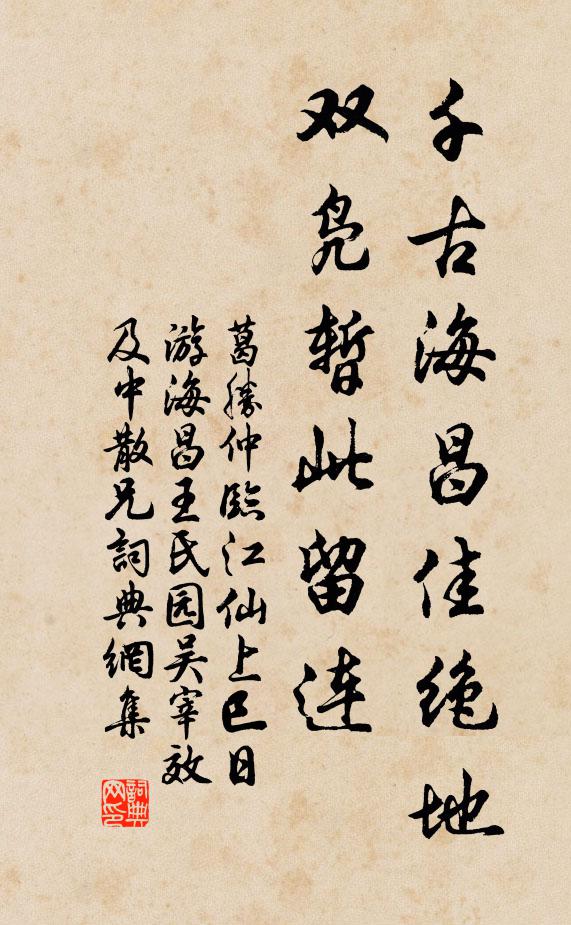 千古海昌佳绝地
双凫暂此留连
葛勝仲臨江仙上巳日
游海昌王氏园吴宰效
及中散兄詞典網集
詞典
网印